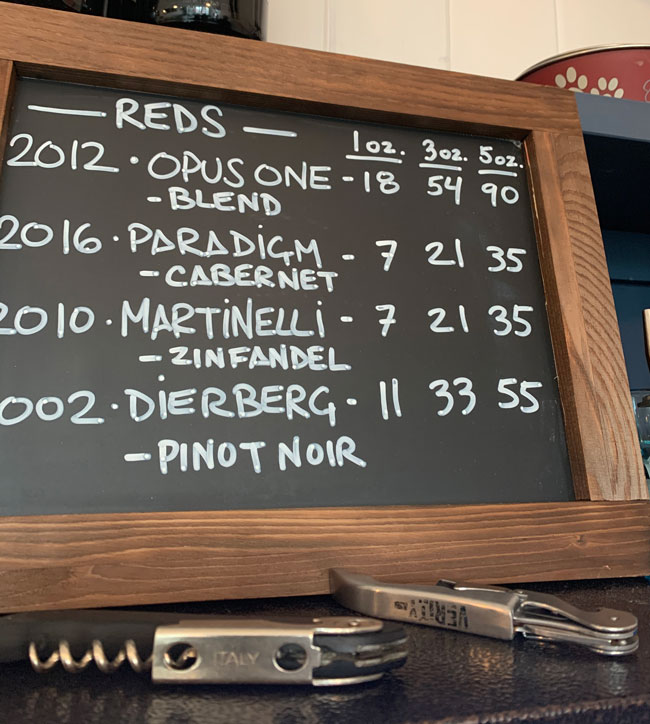 — REDS —
1oz. 3oz. 5oz.
2012 · OPUS ONE - 18 54 90
- BLEND
2016 · PARADiGM - 7 21 35
- CABERNET
2010 · MARTiNELLi - 7 21 35
- ZINFANDEL
002 · DiERBERG - 11 33 55
- PINOT NOIR
VERITY
ITALY